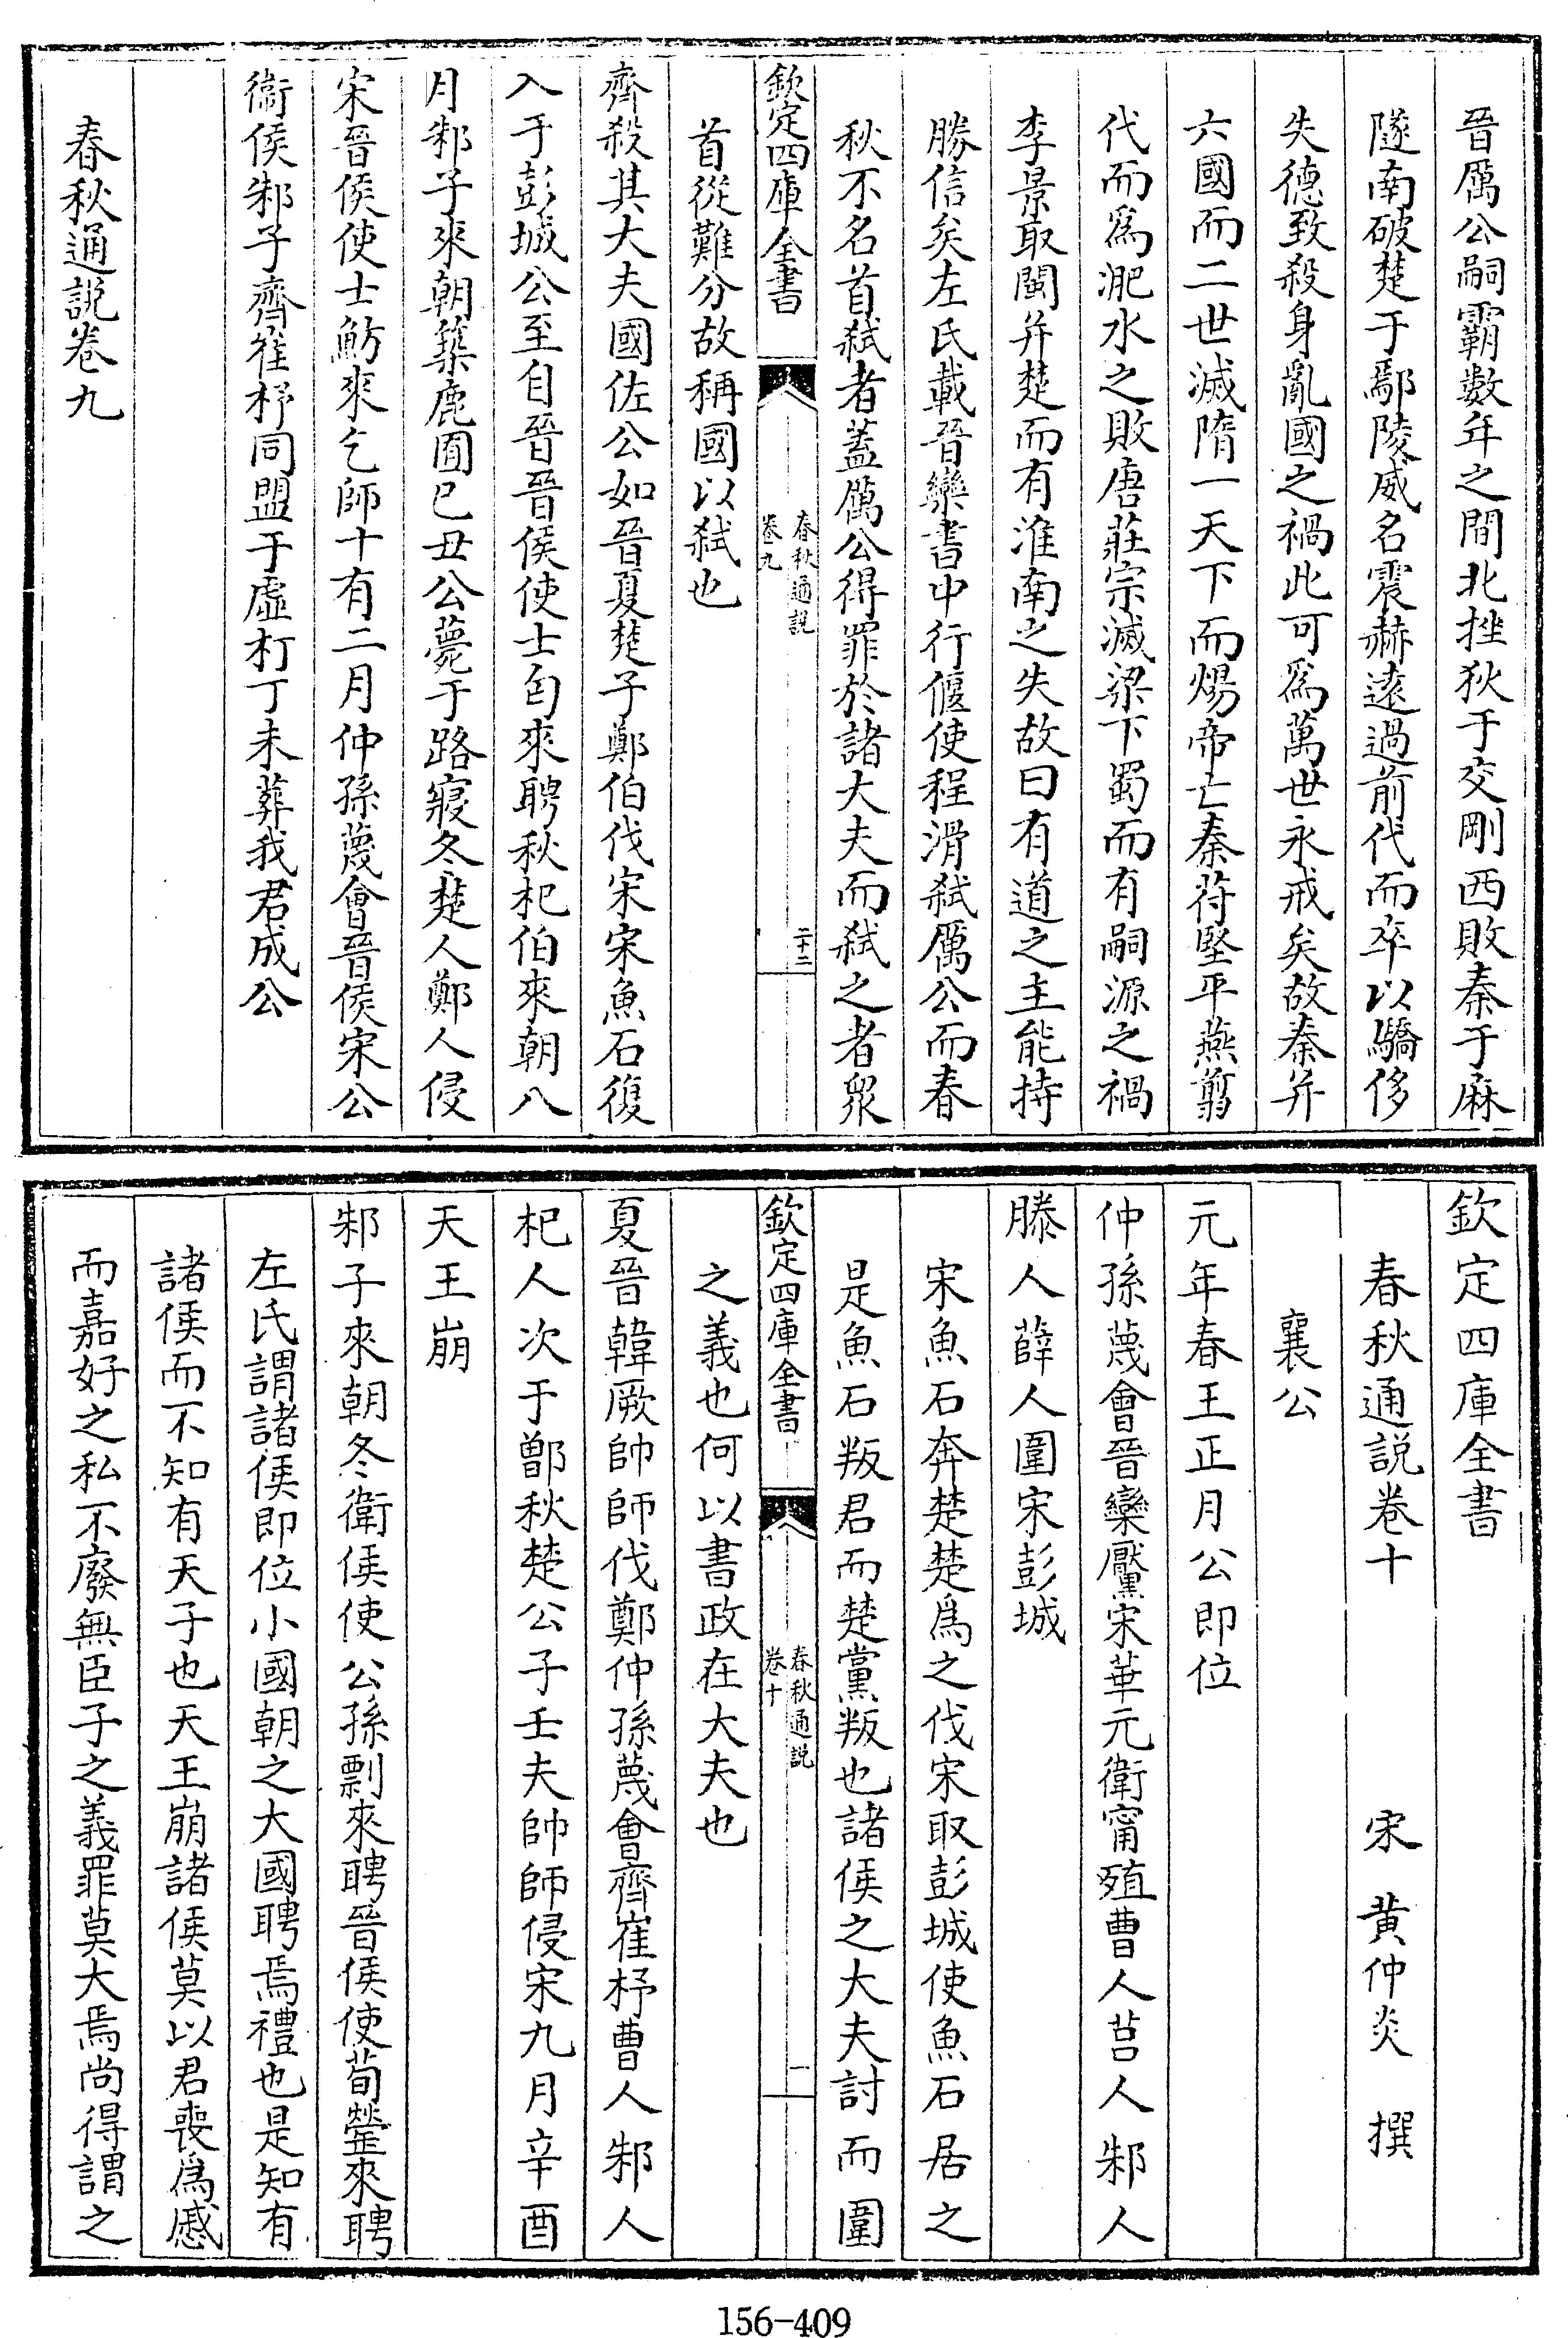 晉厲公嗣霸數年之間北挫狄于交剛西敗秦于麻
隧南破楚于鄢陵威名震赫逺過前代而卒以驕侈
失德致殺身亂國之禍此可為萬世永戒矣故秦并
六國而二世滅隋一天下而煬帝亡秦苻堅平燕翦
代而為淝水之敗唐莊宗滅梁下蜀而有嗣源之禍
李景取閩并楚而有淮南之失故曰有道之主能持
勝信矣左氏載晉欒書中行偃使程滑弑厲公而春
秋不名首弑者蓋厲公得罪於諸大夫而弑之者衆
欽定四庫全書
春秋通説
卷九
二十二
首從難分故稱國以弑也
齊殺其大夫國佐公如晉夏楚子鄭伯伐宋宋魚石復
入于彭城公至自晉晉侯使士匄來聘秋杞伯來朝八
月邾子來朝築鹿囿己丑公薨于路寢冬楚人鄭人侵
宋晉侯使士魴來乞師十有二月仲孫蔑會晉侯宋公
衞侯邾子齊崔杼同盟于虛朾丁未葬我君成公
春秋通説卷九
欽定四庫全書
春秋通説卷十 宋 黄仲炎 撰
襄公
元年春王正月公即位
仲孫蔑會晉欒黶宋華元衛甯殖曹人莒人邾人
滕人薛人圍宋彭城
宋魚石奔楚楚為之伐宋取彭城使魚石居之
是魚石叛君而楚黨叛也諸侯之大夫討而圍
欽定四庫全書
春秋通説
卷十
一
之義也何以書政在大夫也
夏晉韓厥帥師伐鄭仲孫蔑會齊崔杼曹人邾人
杞人次于鄫秋楚公子壬夫帥師侵宋九月辛酉
天王崩
邾子來朝冬衛侯使公孫剽來聘晉侯使荀罃來聘
左氏謂諸侯即位小國朝之大國聘焉禮也是知有
諸侯而不知有天子也天王崩諸侯莫以君喪為慼
而嘉好之私不廢無臣子之義罪莫大焉尚得謂之
156-409